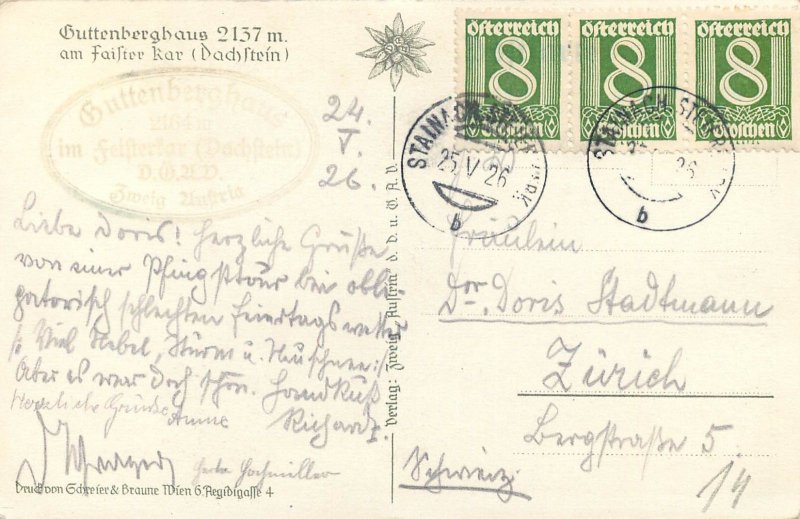 Guttenberghaus 2137 m.
am Faister Kar (Dachstein)
Guttenberghaus
2164 m
im Feisterkar (Dachstein)
D.Ö.A.V.
Zweig Austria
24.
V.
26.
Liebe Doris! Herzliche Grüße
von einer Pfingsttour bei obli-
gatorisch schlechten Feiertagswetter
Viel Nebel, Sturm u. Neuschnee!
Aber es war doch schön. Handkuß
Richard
Herzliche Grüße Anne
Hochmüller
Druck von Schreier & Braune Wien 6. Aegidigasse 4
Verlag: Zweig Austria d. D. u. Ö. A. V.
Österreich Österreich Österreich
8 8 8
Groschen Groschen Groschen
STAINACH-IRDNING
25 V 26
b
STAINACH
26
b
Fräulein
Dor. Doris Stadtmann
Zürich
Bergstraße 5.
Schweiz
14